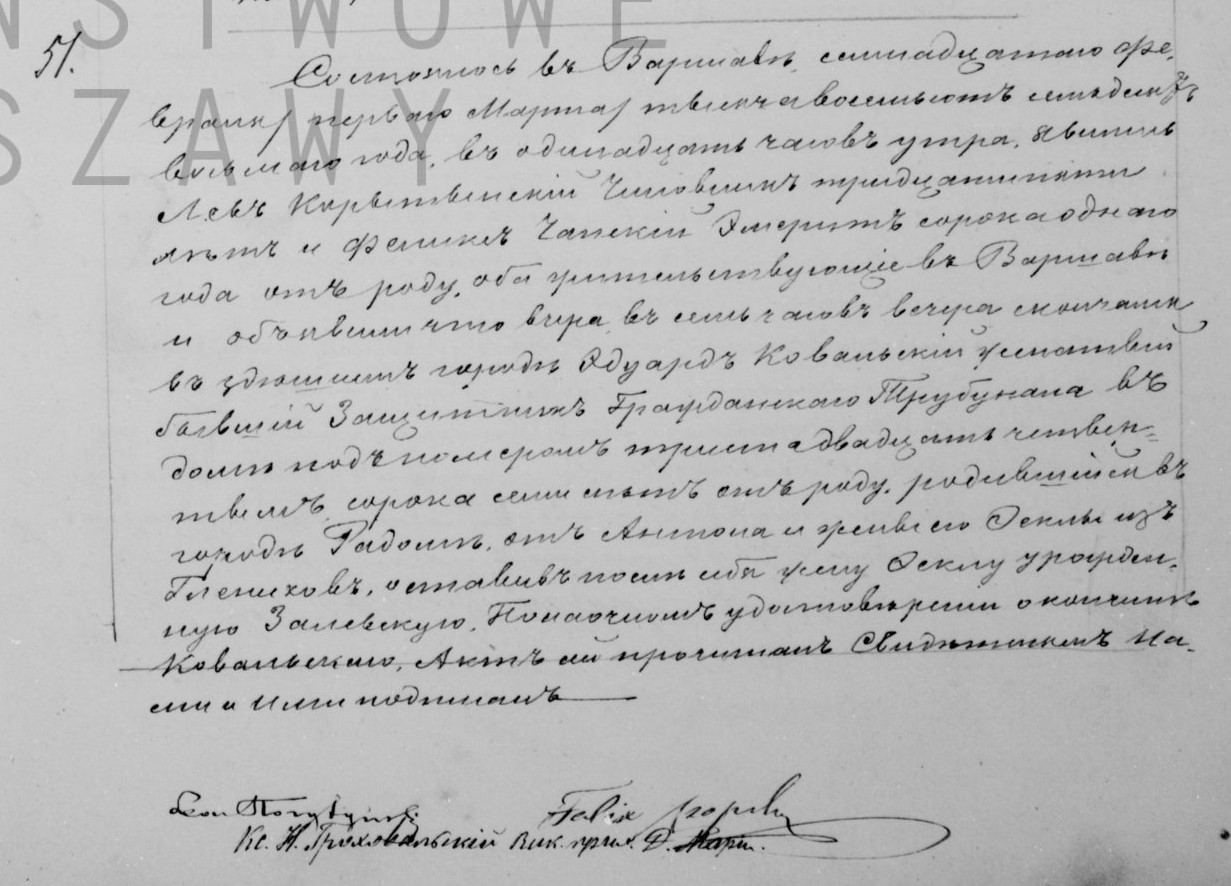 NSTWOWE
SZAWY
51.
Состоялось въ Варшавѣ, семнадцатаго Фе-
враля/ перваго Марта/ тысяча восемьсотъ семьдесятъ
восьмаго года, въ одинадцать часовъ утра. Явились
Левъ Корытынскій Чиновникъ тридцати пяти
лѣтъ и Феликсъ Чапскій Эмеритъ сорока однаго
года отъ роду, оба жительствующіе въ Варшавѣ
и объявили что вчера въ семь часовъ вечера скончался
въ здѣшнемъ городѣ Эдуардъ Ковальскій
бывшій Защитникъ Гражданскаго Трубунала въ
домѣ подъ номеромъ триста двадцать четвер-
тымъ, сорока семи лѣтъ отъ роду, родившійся въ
городѣ Радомѣ, отъ Антона и жены его Феклы изъ
оставивъ послѣ себя жену Феклу урожден-
ную Залевскую. По наочномъ удостовѣреніи о кончинѣ
Ковальскаго, Актъ сей прочитанъ Свидѣтелемъ На-
ми и Ими подписанъ
Leon Korytyński Felix
Кс. Н. Гроховальскій Вик. прих. Д. Мари.